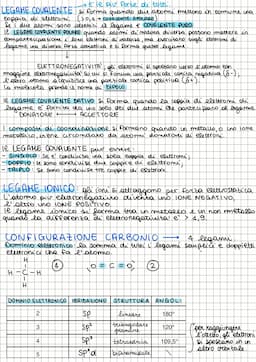 LEGAME COVALENTE si forma quando due atomi mettono in comune una
coppia di elettroni.
Se due atomi sono identici il legame è COVALENTE PURO
IL LEGAME COVALENTE POLARE quando atomi di natura diversa possono mettere in
legame una diversa forza
ELETTRONEGATIVITÀ: gli elettroni si spostano verso l'atomo con
maggiore elettronegatività su cui si forma una parziale carica negativa (δ-);
l'altro atomo acquisterà una parziale carica positiva (δ+)
La molecola prende il nome di DIPOLO
IL LEGAME COVALENTE DATIVO si forma quando la coppia di elettroni di
legame è fornita da uno solo dei due atomi che partecipano al legame
DONATORE → ACCETTORE
I composti di coordinazione si formano quando un metallo, o uno ione
metallico, viene circondato da atomi donatori di elettroni.
IL LEGAME COVALENTE può essere:
- SINGOLO: Se è condivisa una sola coppia di elettroni;
- DOPPIO: Se sono condivise due coppie di elettroni;
- TRIPLO: Se sono condivise tre coppie di elettroni
LEGAME IONICO: gli ioni si attraggono per forza elettrostatica
L'atomo più elettronegativo diventa uno IONE NEGATIVO,
l'altro uno IONE POSITIVO.
Il legame ionico si forma tra un metallo e un non metallo
quando la differenza di elettronegatività è > 1,9.
CONFIGURAZIONE CARBONIO → 4 legami
DOMINIO ELETTRONICO: la somma di tutti i legami semplici e doppietti
elettronici che ha l'atomo.
H
H-C-H ①
H
O=C=O ②
DOMINIO ELETTRONICO IBRIDAZIONE STRUTTURA ANGOLI
2 sp lineare 180°
3 sp² triangolare planare 120°
4 sp³ tetraedrica 109,5°
5 sp³d bipiramidale \
per raggiungere
l'ottetto gli elettroni
si spostano in un
altro orbitale